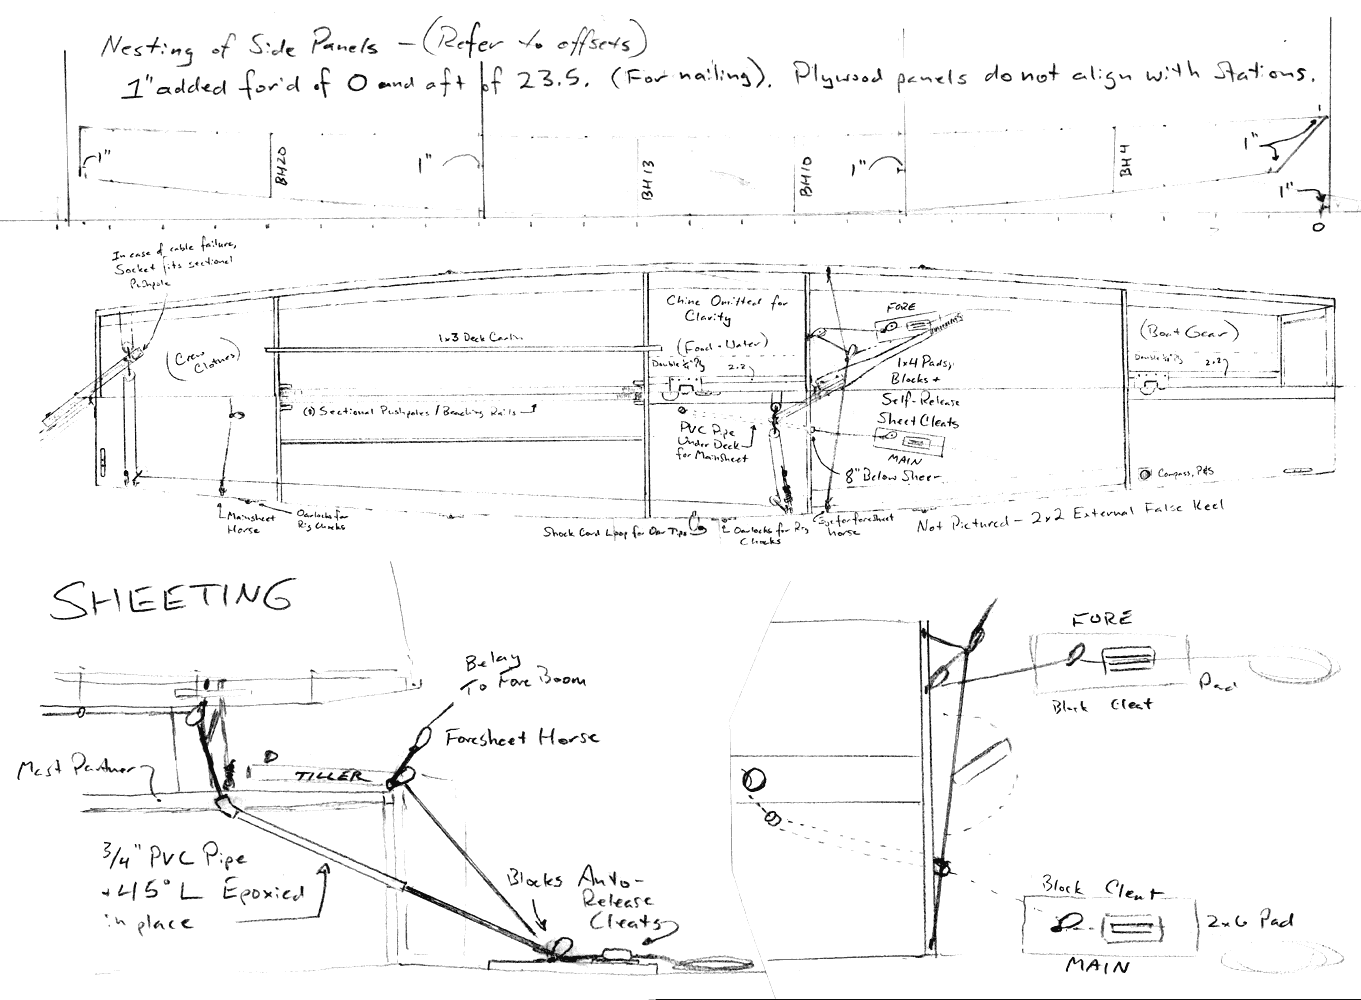 Nesting of Side Panels - (Refer to offsets)
1" added for'd of 0 and aft of 23.5. (For nailing). Plywood panels do not align with Stations.
1"
BH20
1"
BH13
BH10
1"
BH4
1"
1"
0
In case of cable failure,
Socket fits sectional
Pushpole
(Crew
Clothes)
1x3 Deck Carlin
(8) Sectional Pushpoles / Beaching Rails
Chine Omitted for
Clarity
(Food - Water)
Double 1/4" Ply 2x2
PVC Pipe
Under Deck
for Mainsheet
FORE
1x4 Pads,
Blocks +
Self-Release
Sheet Cleats
MAIN
8" Below Sheer
(Boat Gear)
Double 1/4" Ply 2x2
Compass, P&S
Mainsheet
Horse
Oarlocks for
Rig Chocks
Shock Cord Loop for Oar Tips
2 Oarlocks for Rig
Chocks
Eye for foresheet
horse
Not Pictured - 2x2 External False Keel
SHEETING
Belay
To Fore Boom
Foresheet Horse
Mast Partner
TILLER
3/4" PVC Pipe
+ 45° L Epoxied
in place
Blocks
Auto-
Release
Cleats
FORE
Block Cleat
Pad
Block Cleat
2x6 Pad
MAIN